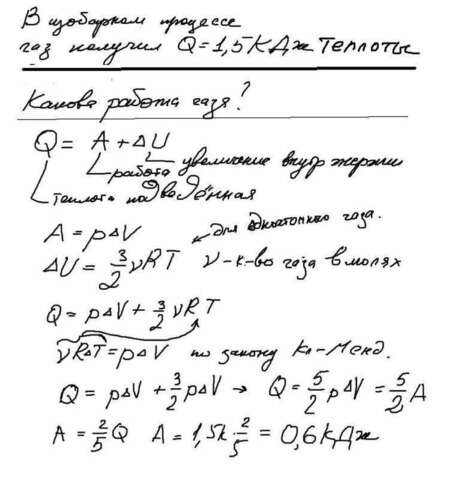 В изобарном процессе
газ получил Q=1,5КДж Теплоты
Какова работа газа?
Q = A + ΔU
работа увеличение внутр энергии
теплота подведённая
A = pΔV для одноатомного газа.
ΔU = 3/2 νRT ν - к-во газа в молях
Q = pΔV + 3/2 νRT
νRΔT = pΔV по закону Кл-Менд.
Q = pΔV + 3/2 pΔV → Q = 5/2 pΔV = 5/2 A
A = 2/5 Q A = 1,5к · 2/5 = 0,6кДж